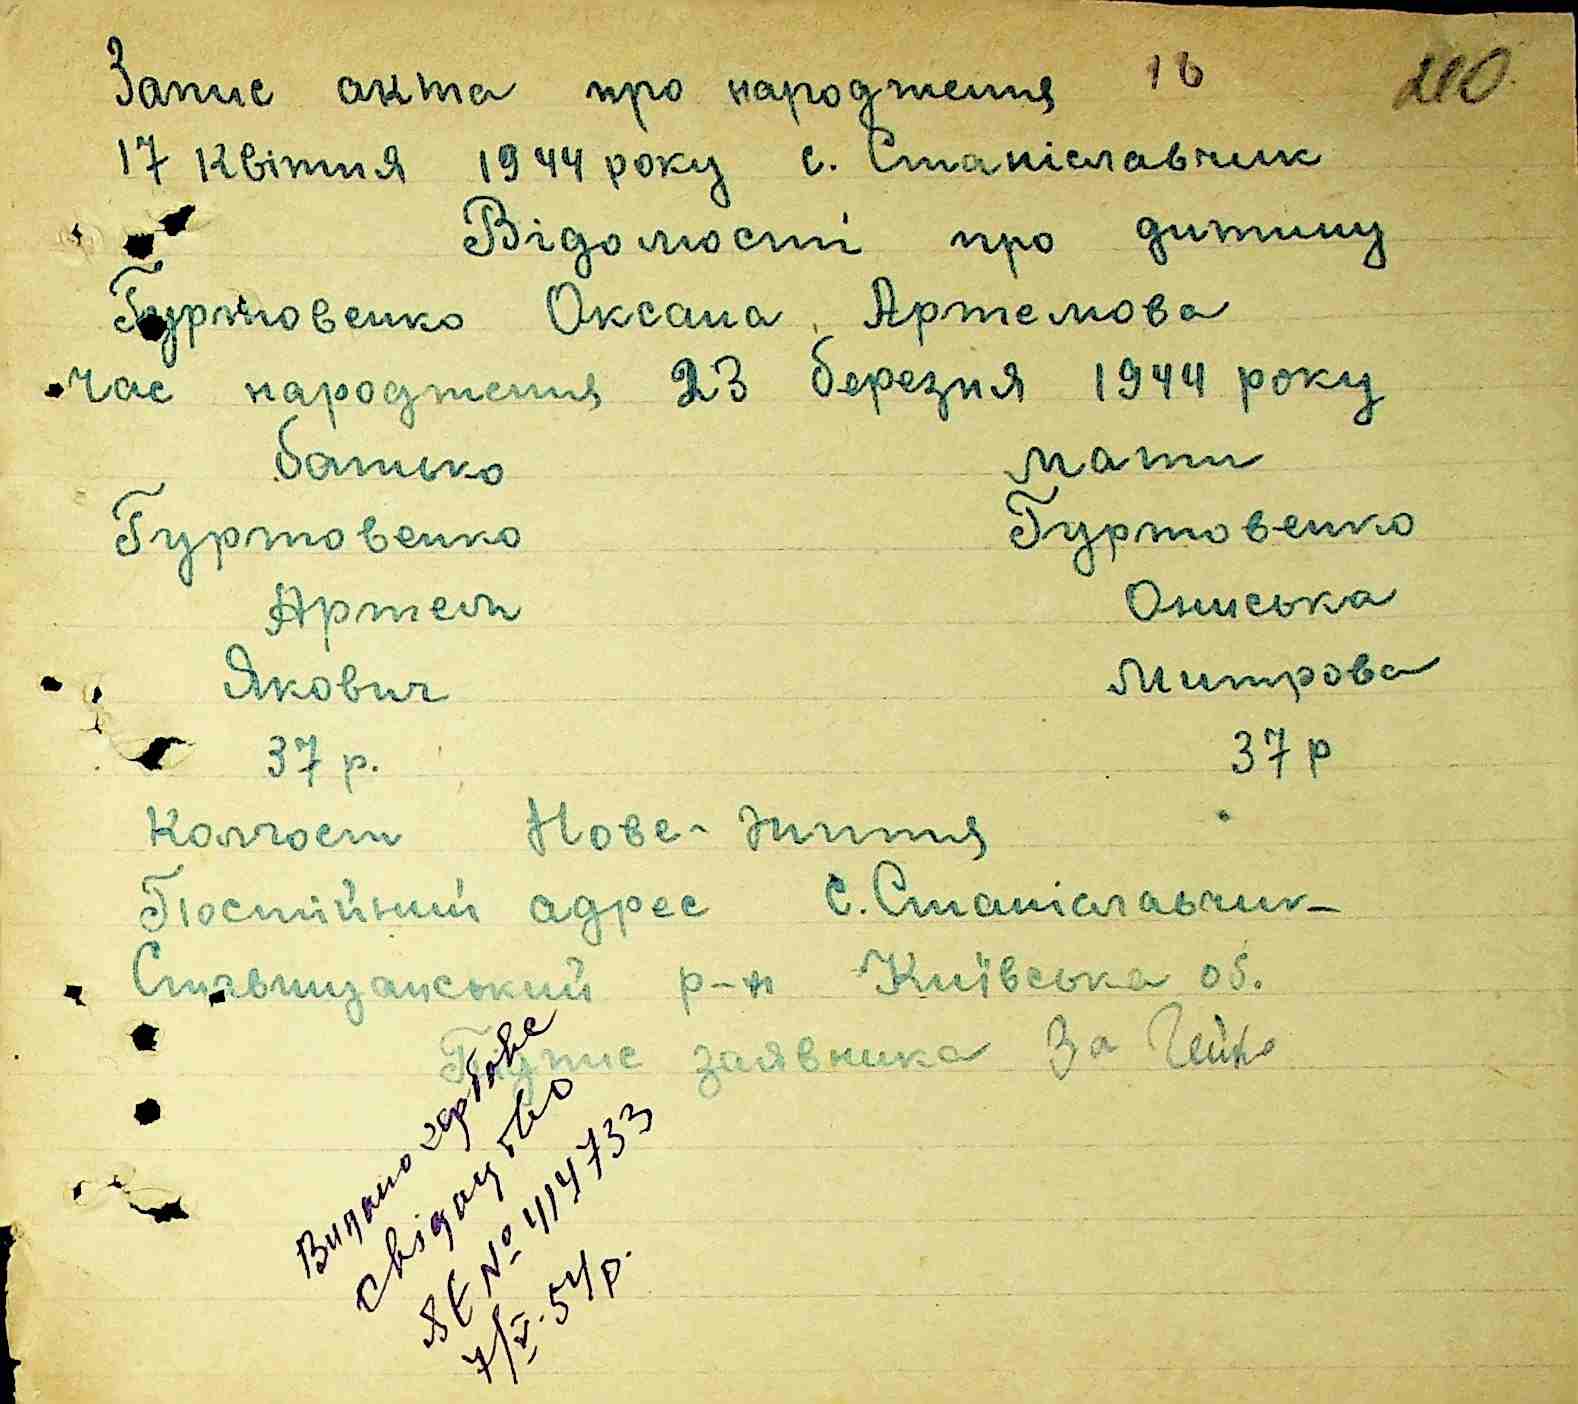 Запис акта про народження 16 210
17 Квітня 1944 року с. Станіславчик
Відомості про дитину
Гуртовенко Оксана Артемова
час народження 23 березня 1944 року
батько мати
Гуртовенко Гуртовенко
Артем Ониська
Якович Митрова
37 р. 37 р
Колгосп Нове-життя
Постійний адрес С. Станіславчик-
Ставищанський р-н Київська об.
Підпис заявника За
Видано гербове
свідоцтво
№ 414733
7/V.54р.